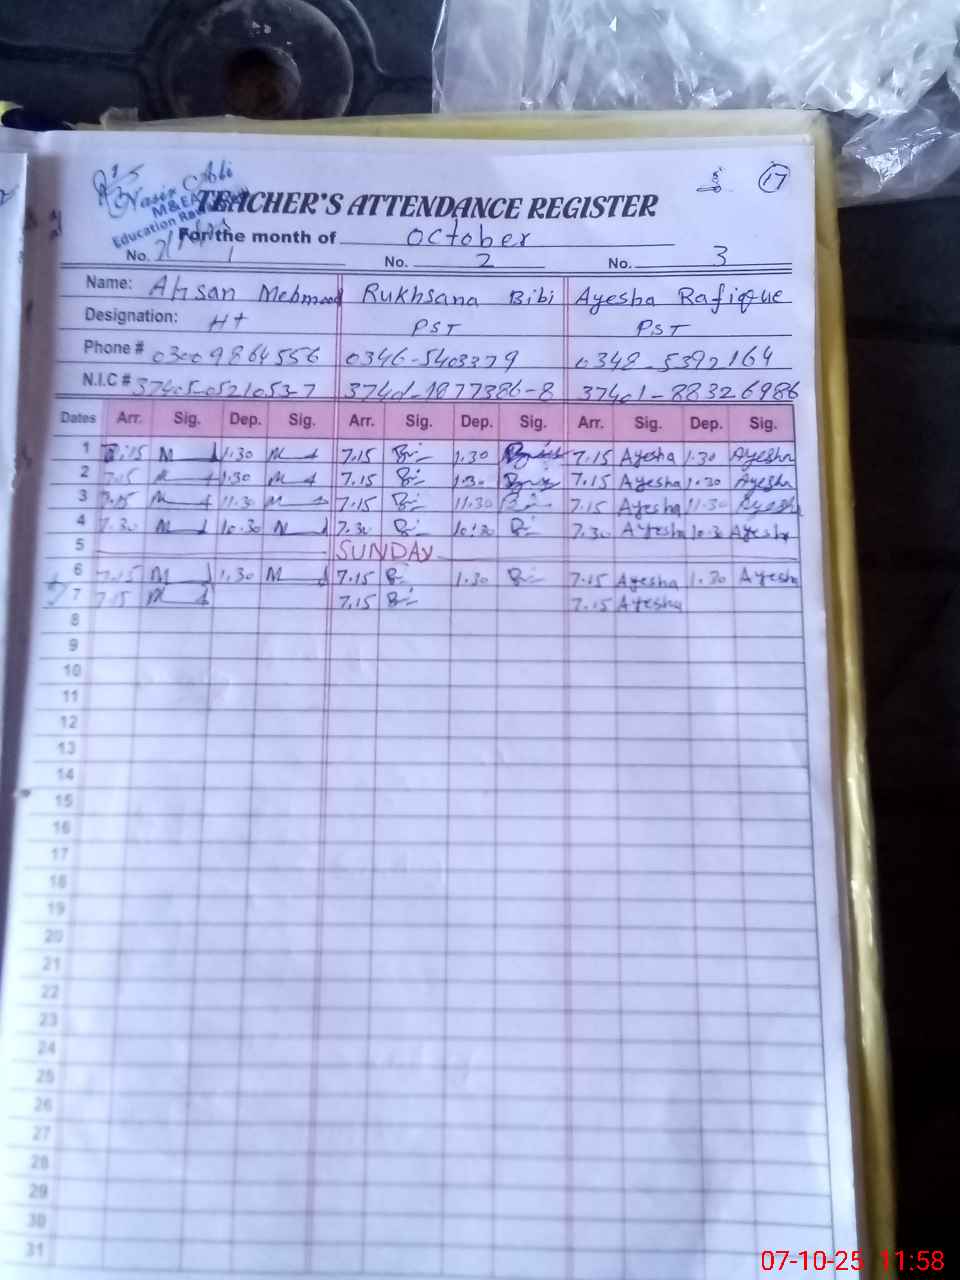 17
Nasir Ali
M&EA
Education
TEACHER'S ATTENDANCE REGISTER
For the month of October
No. 1 No. 2 No. 3
Name: Ahsan Mehmood Rukhsana Bibi Ayesha Rafique
Designation: HT PST PST
Phone # 0300 9864556 0346-5403379 0348-5392164
N.I.C #
Dates Arr. Sig. Dep. Sig. Arr. Sig. Dep. Sig. Arr. Sig. Dep. Sig.
1 1.30 7.15 1.30 7.15 Ayesha 1.30 Ayesha
2 7.15 1.30 7.15 1.30 7.15 Ayesha 1.30 Ayesha
3 7.15 11.30 7.15 11.30 7.15 Ayesha 11.30 Ayesha
4 7.30 10.30 7.30 10:30 7.30 Ayesha 10.30 Ayesha
5 SUNDAY
6 7.15 1.30 7.15 1.30 7.15 Ayesha 1.30 Ayesha
7 7.15 7.15 7.15 Ayesha
8
9
10
11
12
13
14
15
16
17
18
19
20
21
22
23
24
25
26
27
28
29
30
31
07-10-25 11:58